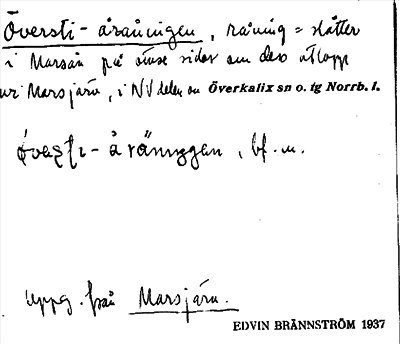 Översti-åråningen, råning = slåtter
i Marsån på ömse sidor om dess utlopp
ur Marsjärv, i NV delen av Överkalix sn o. tg Norrb. l.
-å räninggen, bf. m.
Uppg. från Marsjärv.
EDVIN BRÄNNSTRÖM 1937